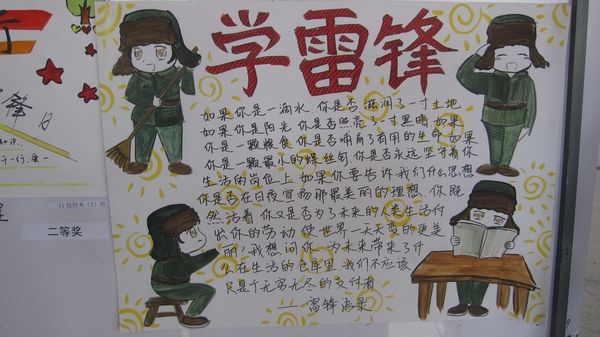 学雷锋
如果你是一滴水 你是否滋润了一寸土地
如果你是阳光 你是否照亮了一寸黑暗 如果
你是一颗粮食 你是否哺育了有用的生命 如果
你是一颗最小的螺丝钉 你是否永远坚守着你
生活的岗位上 如果你要告诉我们什么思想
你是否在日夜宣扬那最美丽的理想 你既
然活着 你又是否为了未来的人类生活付
出你的劳动 使世界一天天变的更美
丽？我想问你 为未来带来了什
么 在生活的仓库里 我们不应该
只是个无穷无尽的支付者
——雷锋
锋
二等奖